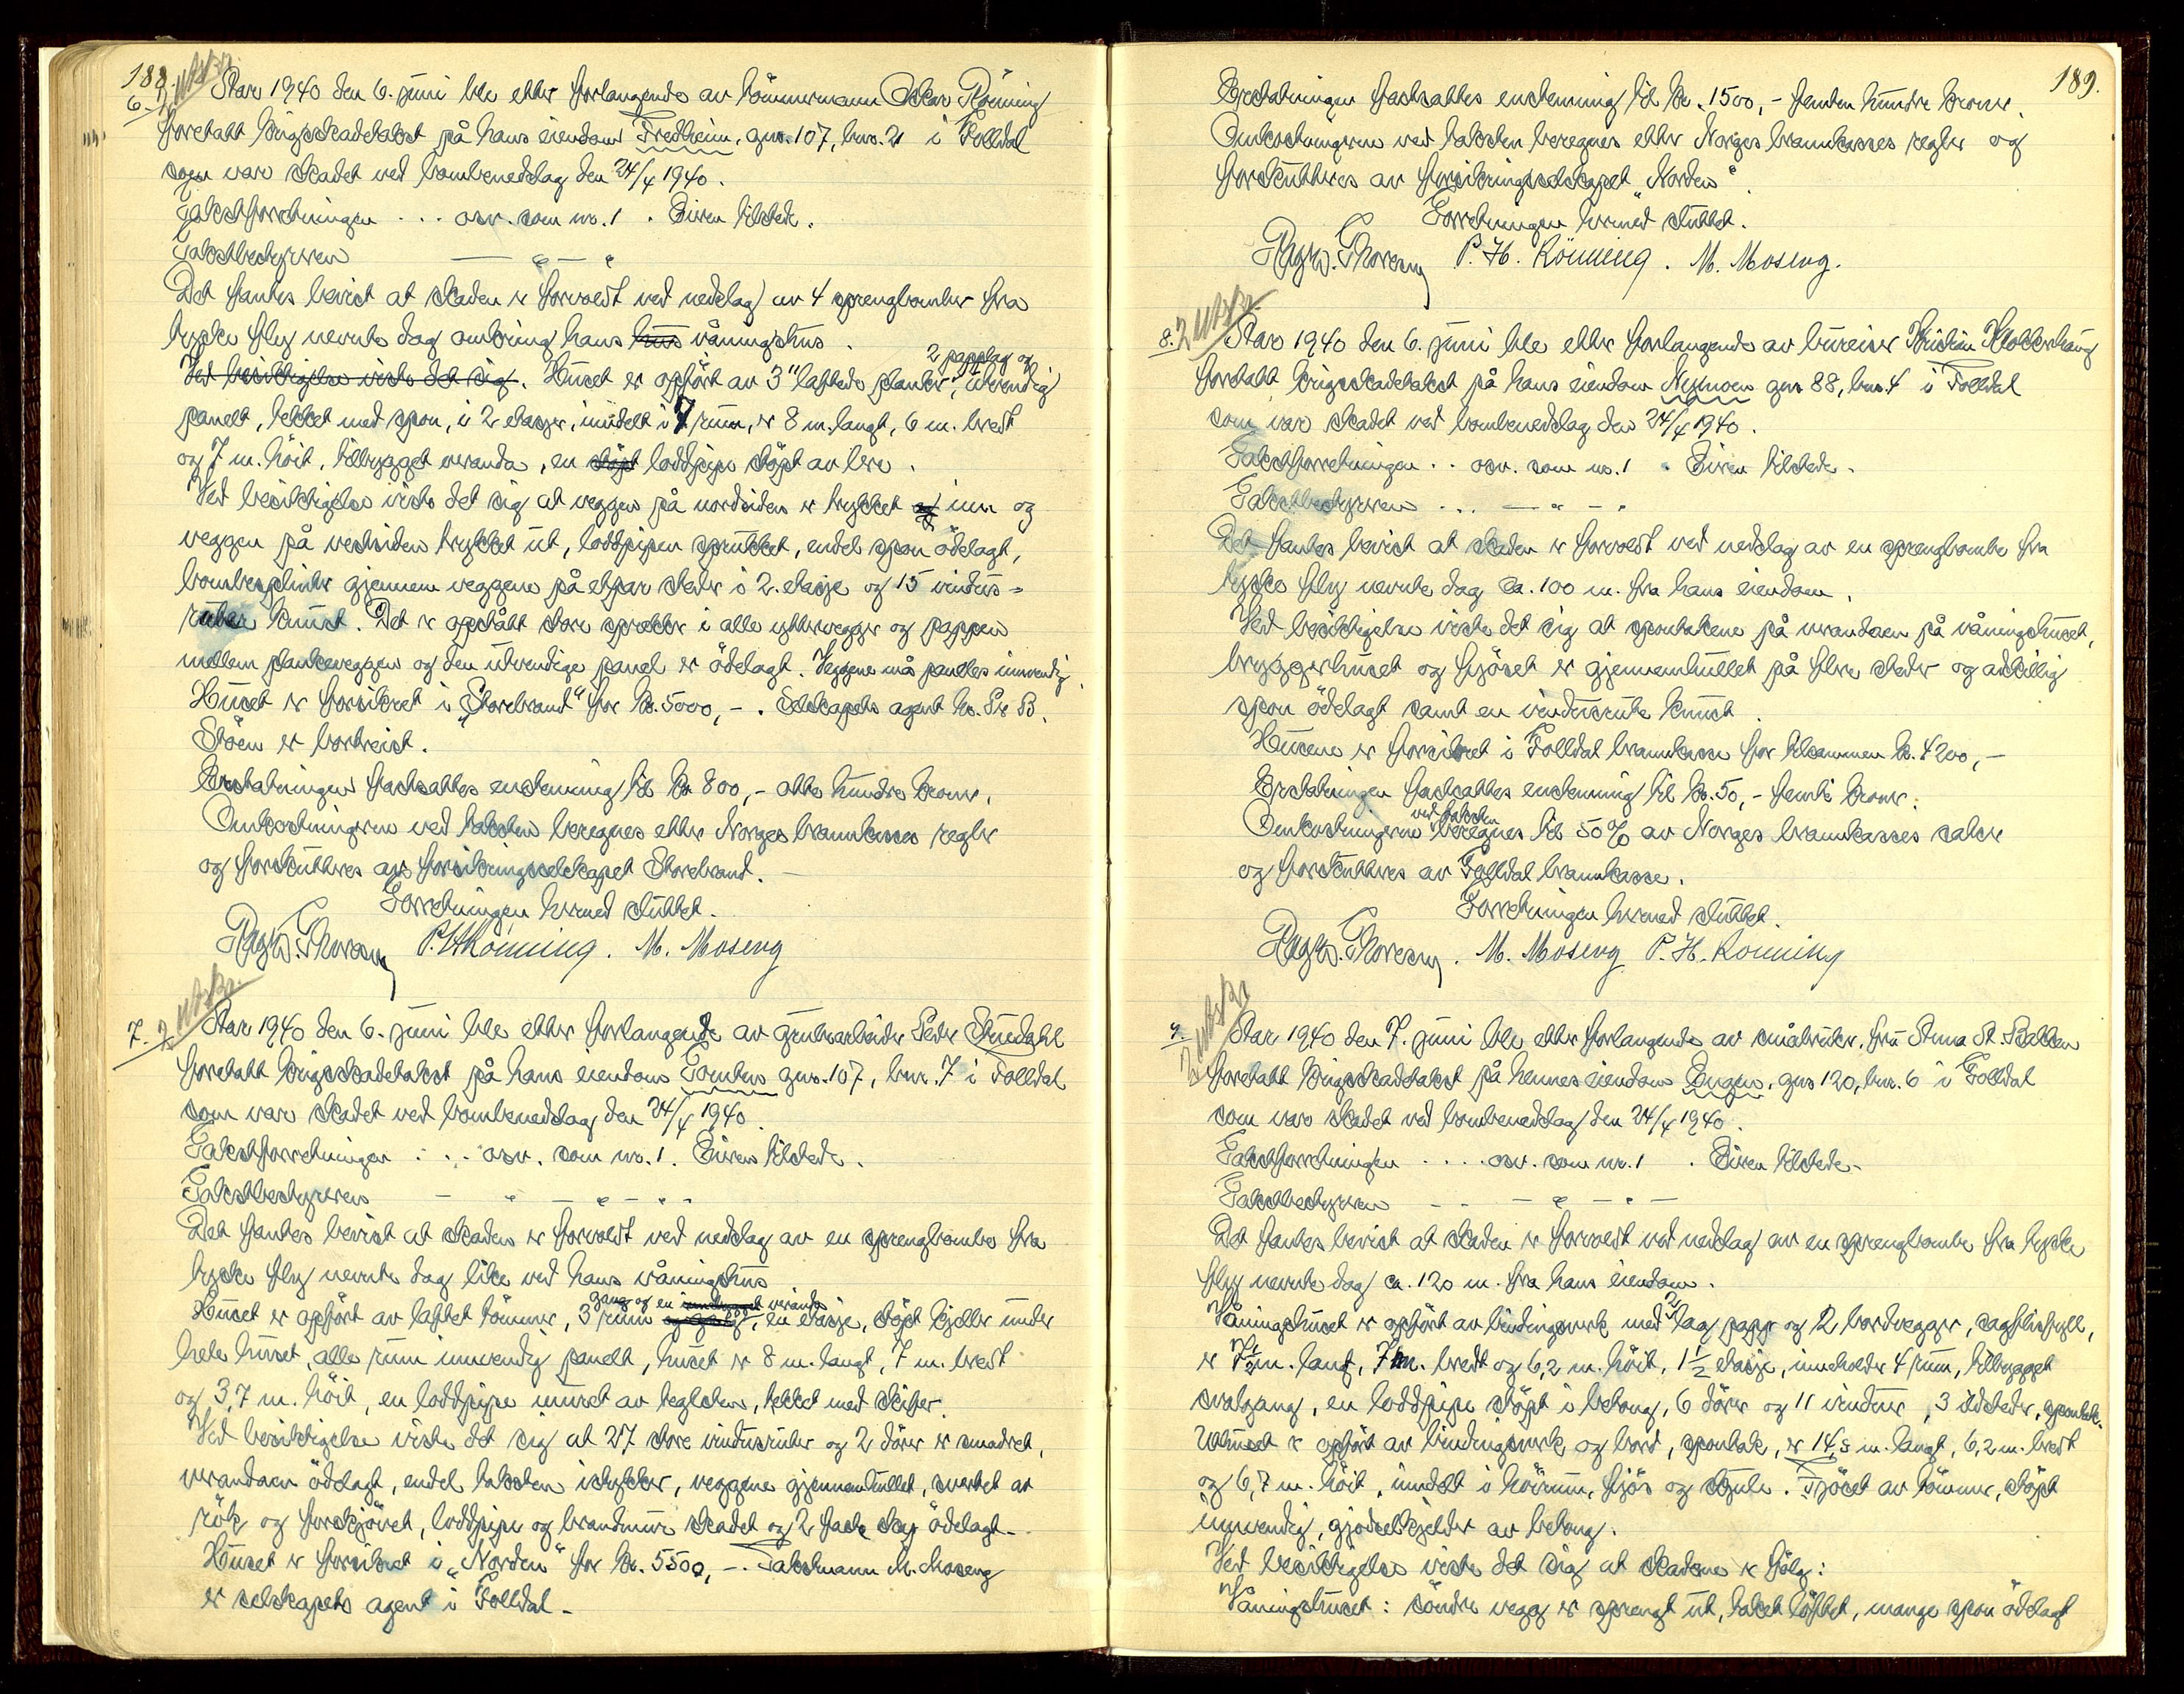 188.
6.
År 1940 den 6. juni ble etter forlangende av tömmermann Oskar Rönning
foretatt krigsskadetakst på hans eiendom Fredheim, gnr. 107, bnr. 21 i Folldal
som var skadet ved bombenedslag den 24/4 1940.
Takstforretningen ... osv. som nr. 1. Eieren tilstede.
Takstbestyreren — " — "
Det fantes bevist at skaden er forvoldt ved nedslag av 4 sprengbomber fra
tyske fly nevnte dag omkring hans hus våningshus.
Ved besiktigelse viste det sig. Huset er opfört av 3" laftede planker, 2 papplag og utvendig
panelt, tekket med spon, i 2 etasjer, inndelt i 7 rum, er 8 m. langt, 6 m. bredt
og 7 m. höit, tilbygget veranda, en stöpt loddpipe stöpt av lere.
Ved besiktigelse viste det sig at veggen på nordsiden er trykket og inn og
veggen på vestsiden trykket ut, loddpipen sprukket, endel spon ödelagt,
bombesplinter gjennem veggene på etpar steder i 2. etasje og 15 vindus-
ruter knust. Det er opstått store sprekker i alle yttervegger og pappen
mellem plankeveggen og den utvendige panel er ödelagt. Veggene må paneles innvendig.
Huset er forsikret i "Storebrand" for kr. 5000,-. Selskapets agent hr. Per B.
Stöen er bortreist.
Erstatningen fastsattes enstemmig til kr 800,- otte hundre kroner.
Omkostningene ved taksten beregnes etter Norges brannkasses regler
og forskutteres av forsikringsselskapet Storebrand.
Forretningen hermed sluttet.
Ragnv. Thoresen P. H. Rönning. M. Moseng
7.
År 1940 den 6. juni ble etter forlangende av grubearbeider Peder Stuedahl
foretatt krigsskadetakst på hans eiendom Tomten gnr. 107, bnr. 7 i Folldal
som var skadet ved bombenedslag den 24/4 1940.
Takstforretningen ... osv. som nr. 1. Eieren tilstede.
Takstbestyreren — " — " — "
Det fantes bevist at skaden er forvoldt ved nedslag av en sprengbombe fra
tyske fly nevnte dag like ved hans våningshus.
Huset er opfört av laftet tömmer, 3 rum gang og en veranda, en etasje, stöpt kjeller under
hele huset, alle rum innvendig panelt, huset er 8 m. langt, 7 m. bredt
og 3,7 m. höit, en loddpipe muret av teglsten, tekket med skifer.
Ved besiktigelse viste det sig at 27 store vindusruter og 2 dörer er smadret,
verandaen ödelagt, endel taksten istykker, veggene gjennemhullet, svertet av
rök og forskjövet, loddpipe og brandmur skadet og 2 faste skap ödelagt.
Huset er forsikret i "Norden" for kr. 5500,-. Takstmann M. Moseng
er selskapets agent i Folldal.
189.
Erstatningen fastsattes enstemmig til kr. 1500,- femten hundre kroner.
Omkostningene ved taksten beregnes etter Norges brannkasses regler og
forskutteres av forsikringsselskapet "Norden".
Forretningen hermed sluttet.
Ragnv. Thoresen P. H. Rönning. M. Moseng.
8.
År 1940 den 6. juni ble etter forlangende av bureiser Kristian Klokkerhaug
foretatt krigsskadetakst på hans eiendom Nymoen gnr 88, bnr. 4 i Folldal
som var skadet ved bombenedslag den 24/4 1940.
Takstforretningen .. osv. som nr. 1. Eieren tilstede.
Takstbestyreren ... — " — "
Det fantes bevist at skaden er forvoldt ved nedslag av en sprengbombe fra
tyske fly nevnte dag ca. 100 m. fra hans eiendom.
Ved besiktigelse viste det sig at spontakene på verandaen på våningshuset,
bryggerhuset og fjöset er gjennemhullet på flere steder og adskillig
spon ödelagt samt en vindusrute knust.
Husene er forsikret i Folldal brannkasse for tilsammen kr. 4200,-
Erstatningen fastsattes enstemmig til kr. 50,- femti kroner.
Omkostningene ved taksten beregnes til 50% av Norges brannkasses satser
og forskutteres av Folldal brannkasse.
Forretningen hermed sluttet.
Ragnv. Thoresen. M. Moseng P. H. Rönning
9.
År 1940 den 7. juni ble etter forlangende av småbruker, fru Anna St. Bakken
foretatt krigsskadetakst på hennes eiendom Engen, gnr 120, bnr. 6 i Folldal
som var skadet ved bombenedslag den 24/4 1940.
Takstforretningen .... osv. som nr. 1. Eieren tilstede.
Takstbestyreren — " — " —
Det fantes bevist at skaden er forvoldt ved nedslag av en sprengbombe fra tyske
fly nevnte dag ca. 120 m. fra hans eiendom.
Våningshuset er opfört av bindingsverk med 2 lag papp og 2 bordvegger, sagflisfyll,
er 7 1/2 m. langt, 7 m. bredt og 6,2 m. höit, 1 1/2 etasje, inneholder 4 rum, tilbygget
svalgang, en loddpipe stöpt i betong, 6 dörer og 11 vinduer, 3 ildsteder, spontak.
Uthuset er opfört av bindingsverk og bord, spontak, er 14,8 m. langt, 6,2 m. bredt
og 6,7 m. höit, inndelt i höirum, fjös og skjule. Fjöset av tömmer, stöpt
innvendig, gjödselkjelder av betong.
Ved besiktigelse viste det sig at skadene er fölg:
Våningshuset: söndre vegg er sprengt ut, taket löftet, mange spon ödelagt